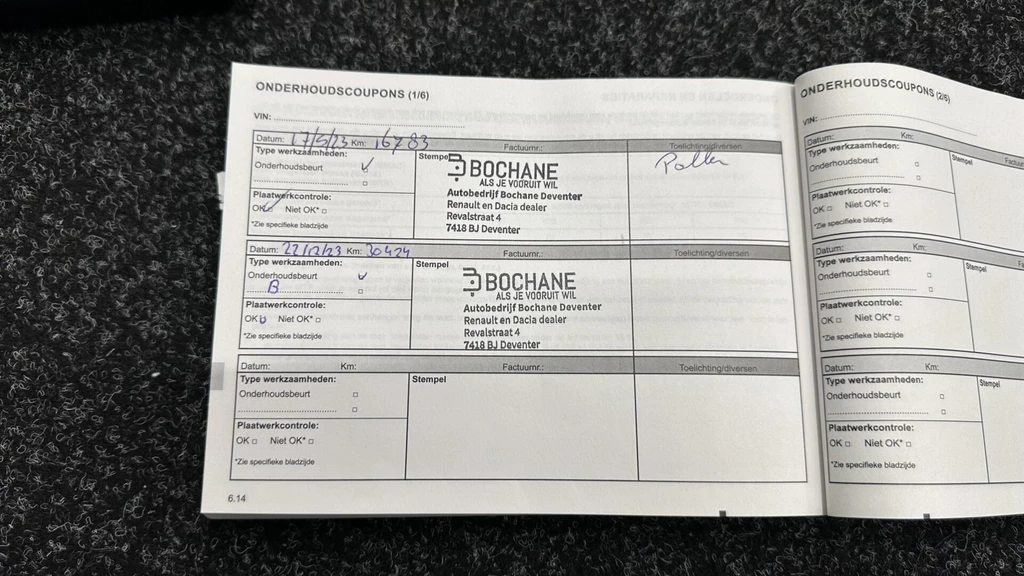 ONDERHOUDSCOUPONS (1/6)
VIN:
Datum: 17/5/23 Km: 16783 Factuurnr.: Toelichting/diversen
Type werkzaamheden: Stempel
Onderhoudsbeurt
Plaatwerkcontrole:
OK Niet OK*
*Zie specifieke bladzijde
BOCHANE
ALS JE VOORUIT WIL
Autobedrijf Bochane Deventer
Renault en Dacia dealer
Revalstraat 4
7418 BJ Deventer
Datum: 22/12/23 Km: 30424 Factuurnr.: Toelichting/diversen
Type werkzaamheden: Stempel
Onderhoudsbeurt
B
Plaatwerkcontrole:
OK Niet OK*
*Zie specifieke bladzijde
BOCHANE
ALS JE VOORUIT WIL
Autobedrijf Bochane Deventer
Renault en Dacia dealer
Revalstraat 4
7418 BJ Deventer
Datum: Km: Factuurnr.: Toelichting/diversen
Type werkzaamheden: Stempel
Onderhoudsbeurt
Plaatwerkcontrole:
OK Niet OK*
*Zie specifieke bladzijde
6.14
ONDERHOUDSCOUPONS (2/6)
VIN:
Datum: Km:
Type werkzaamheden: Stempel
Onderhoudsbeurt
Plaatwerkcontrole:
OK Niet OK*
*Zie specifieke bladzijde
Datum: Km:
Type werkzaamheden: Stempel
Onderhoudsbeurt
Plaatwerkcontrole:
OK Niet OK*
*Zie specifieke bladzijde
Datum: Km:
Type werkzaamheden: Stempel
Onderhoudsbeurt
Plaatwerkcontrole:
OK Niet OK*
*Zie specifieke bladzijde